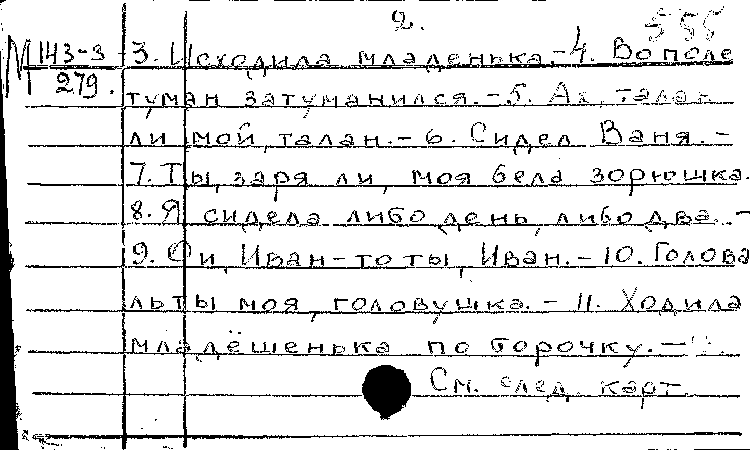 2.
555
М 143-3 3. Исходила младенька.-4. Во поле
279. туман затуманился.-5. Ах, талан
ли мой, талан.-6. Сидел Ваня.-
7. Ты, заря ли, моя бела зорюшка.
8. Я сидела либо день, либо два.-
9. Ой, Иван-то ты, Иван.-10. Голова
ль ты моя, головушка.-11. Ходила
младёшенька по борочку.-
См. след. карт.